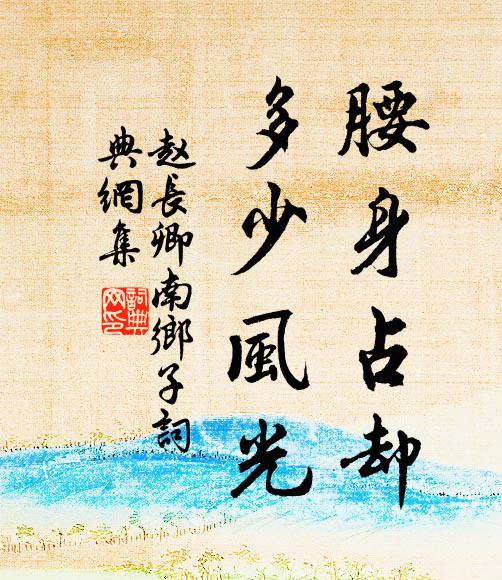 腰身占却
多少風光
赵長卿南鄉子詞
典網集
詞典网印